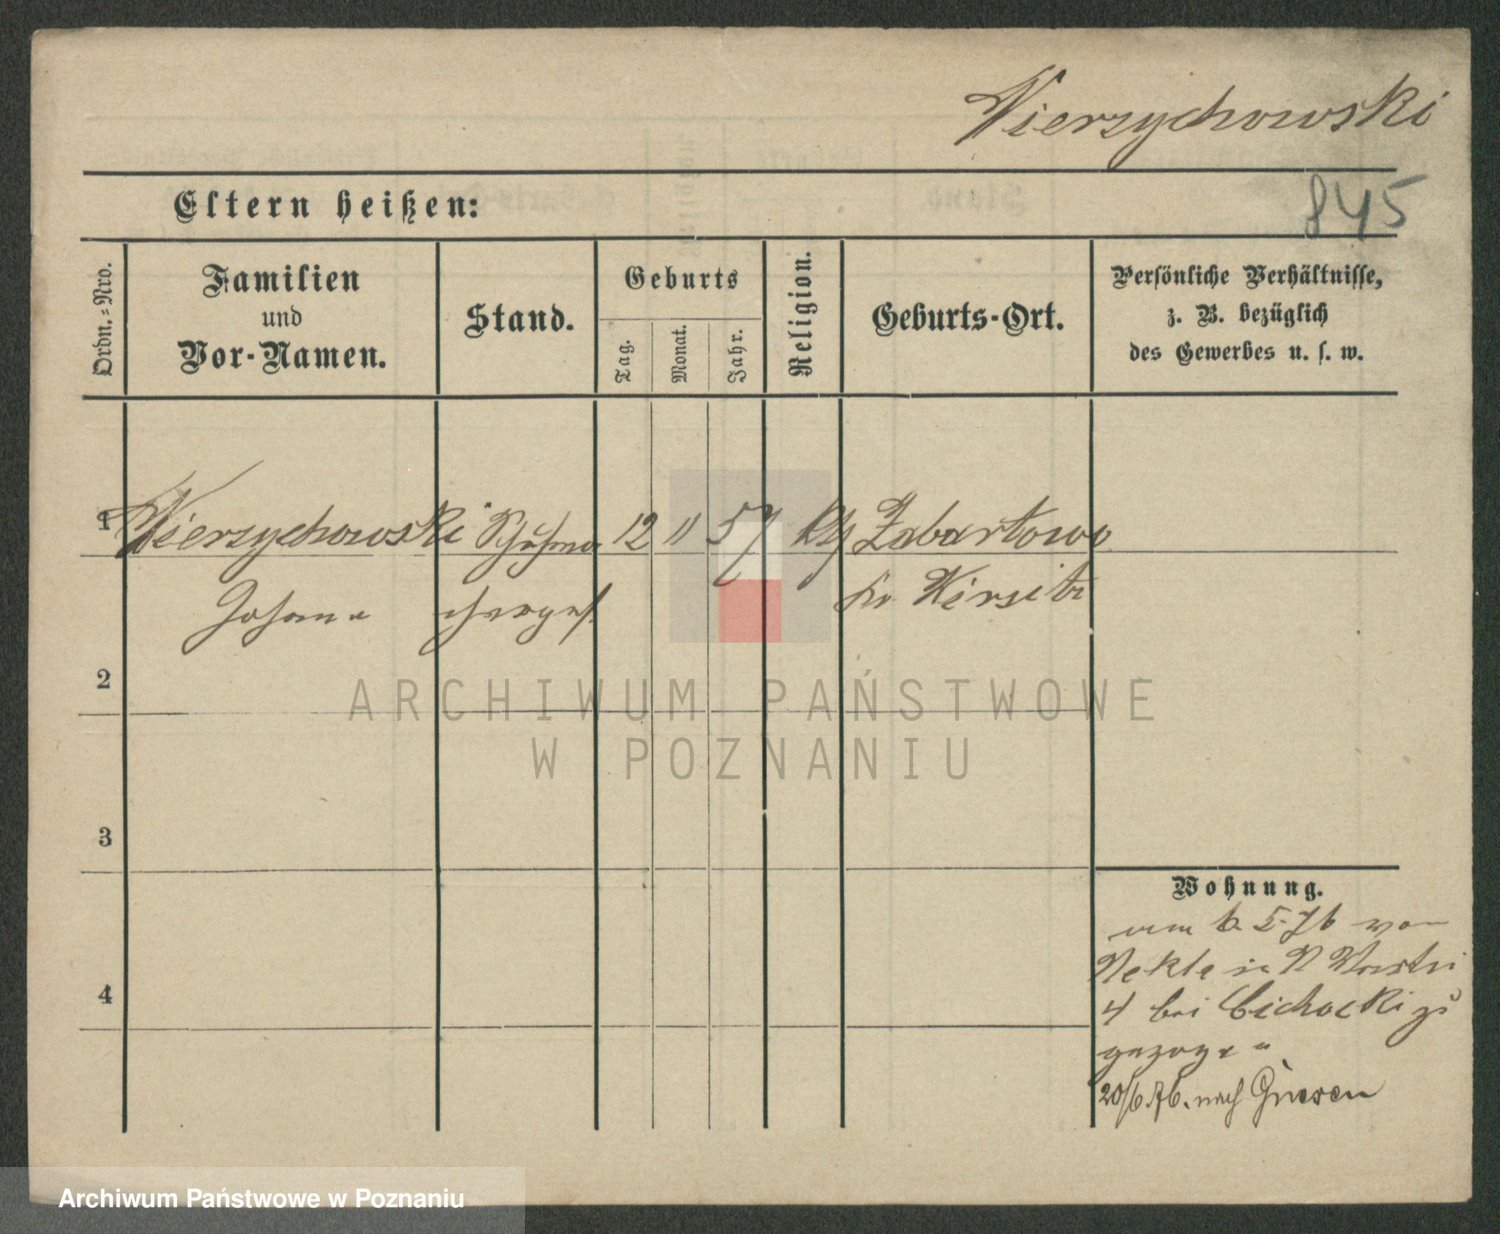 Wierzychowski
845
Eltern heißen:
Ordn.-Nro.
Familien
und
Vor-Namen.
Stand.
Geburts
Tag.
Monat.
Jahr.
Religion.
Geburts-Ort.
Persönliche Verhältnisse,
z. B. bezüglich
des Gewerbes u. s. w.
1 Wierzychowski Schuhma 12 11 57 kth Zabartowo
Johann chergs. Kr. Wirsitz
2
3
4
Wohnung.
vom 6. 5. 76 von
Nekla in
4 bei Cichocki zu
gezogen
20/6. 76. nach Gnesen
ARCHIWUM PAŃSTWOWE
W POZNANIU
Archiwum Państwowe w Poznaniu